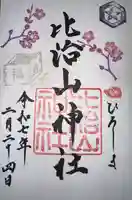 ひろしま
比治山神社
比治山
神社
令和七年
二月二十四日